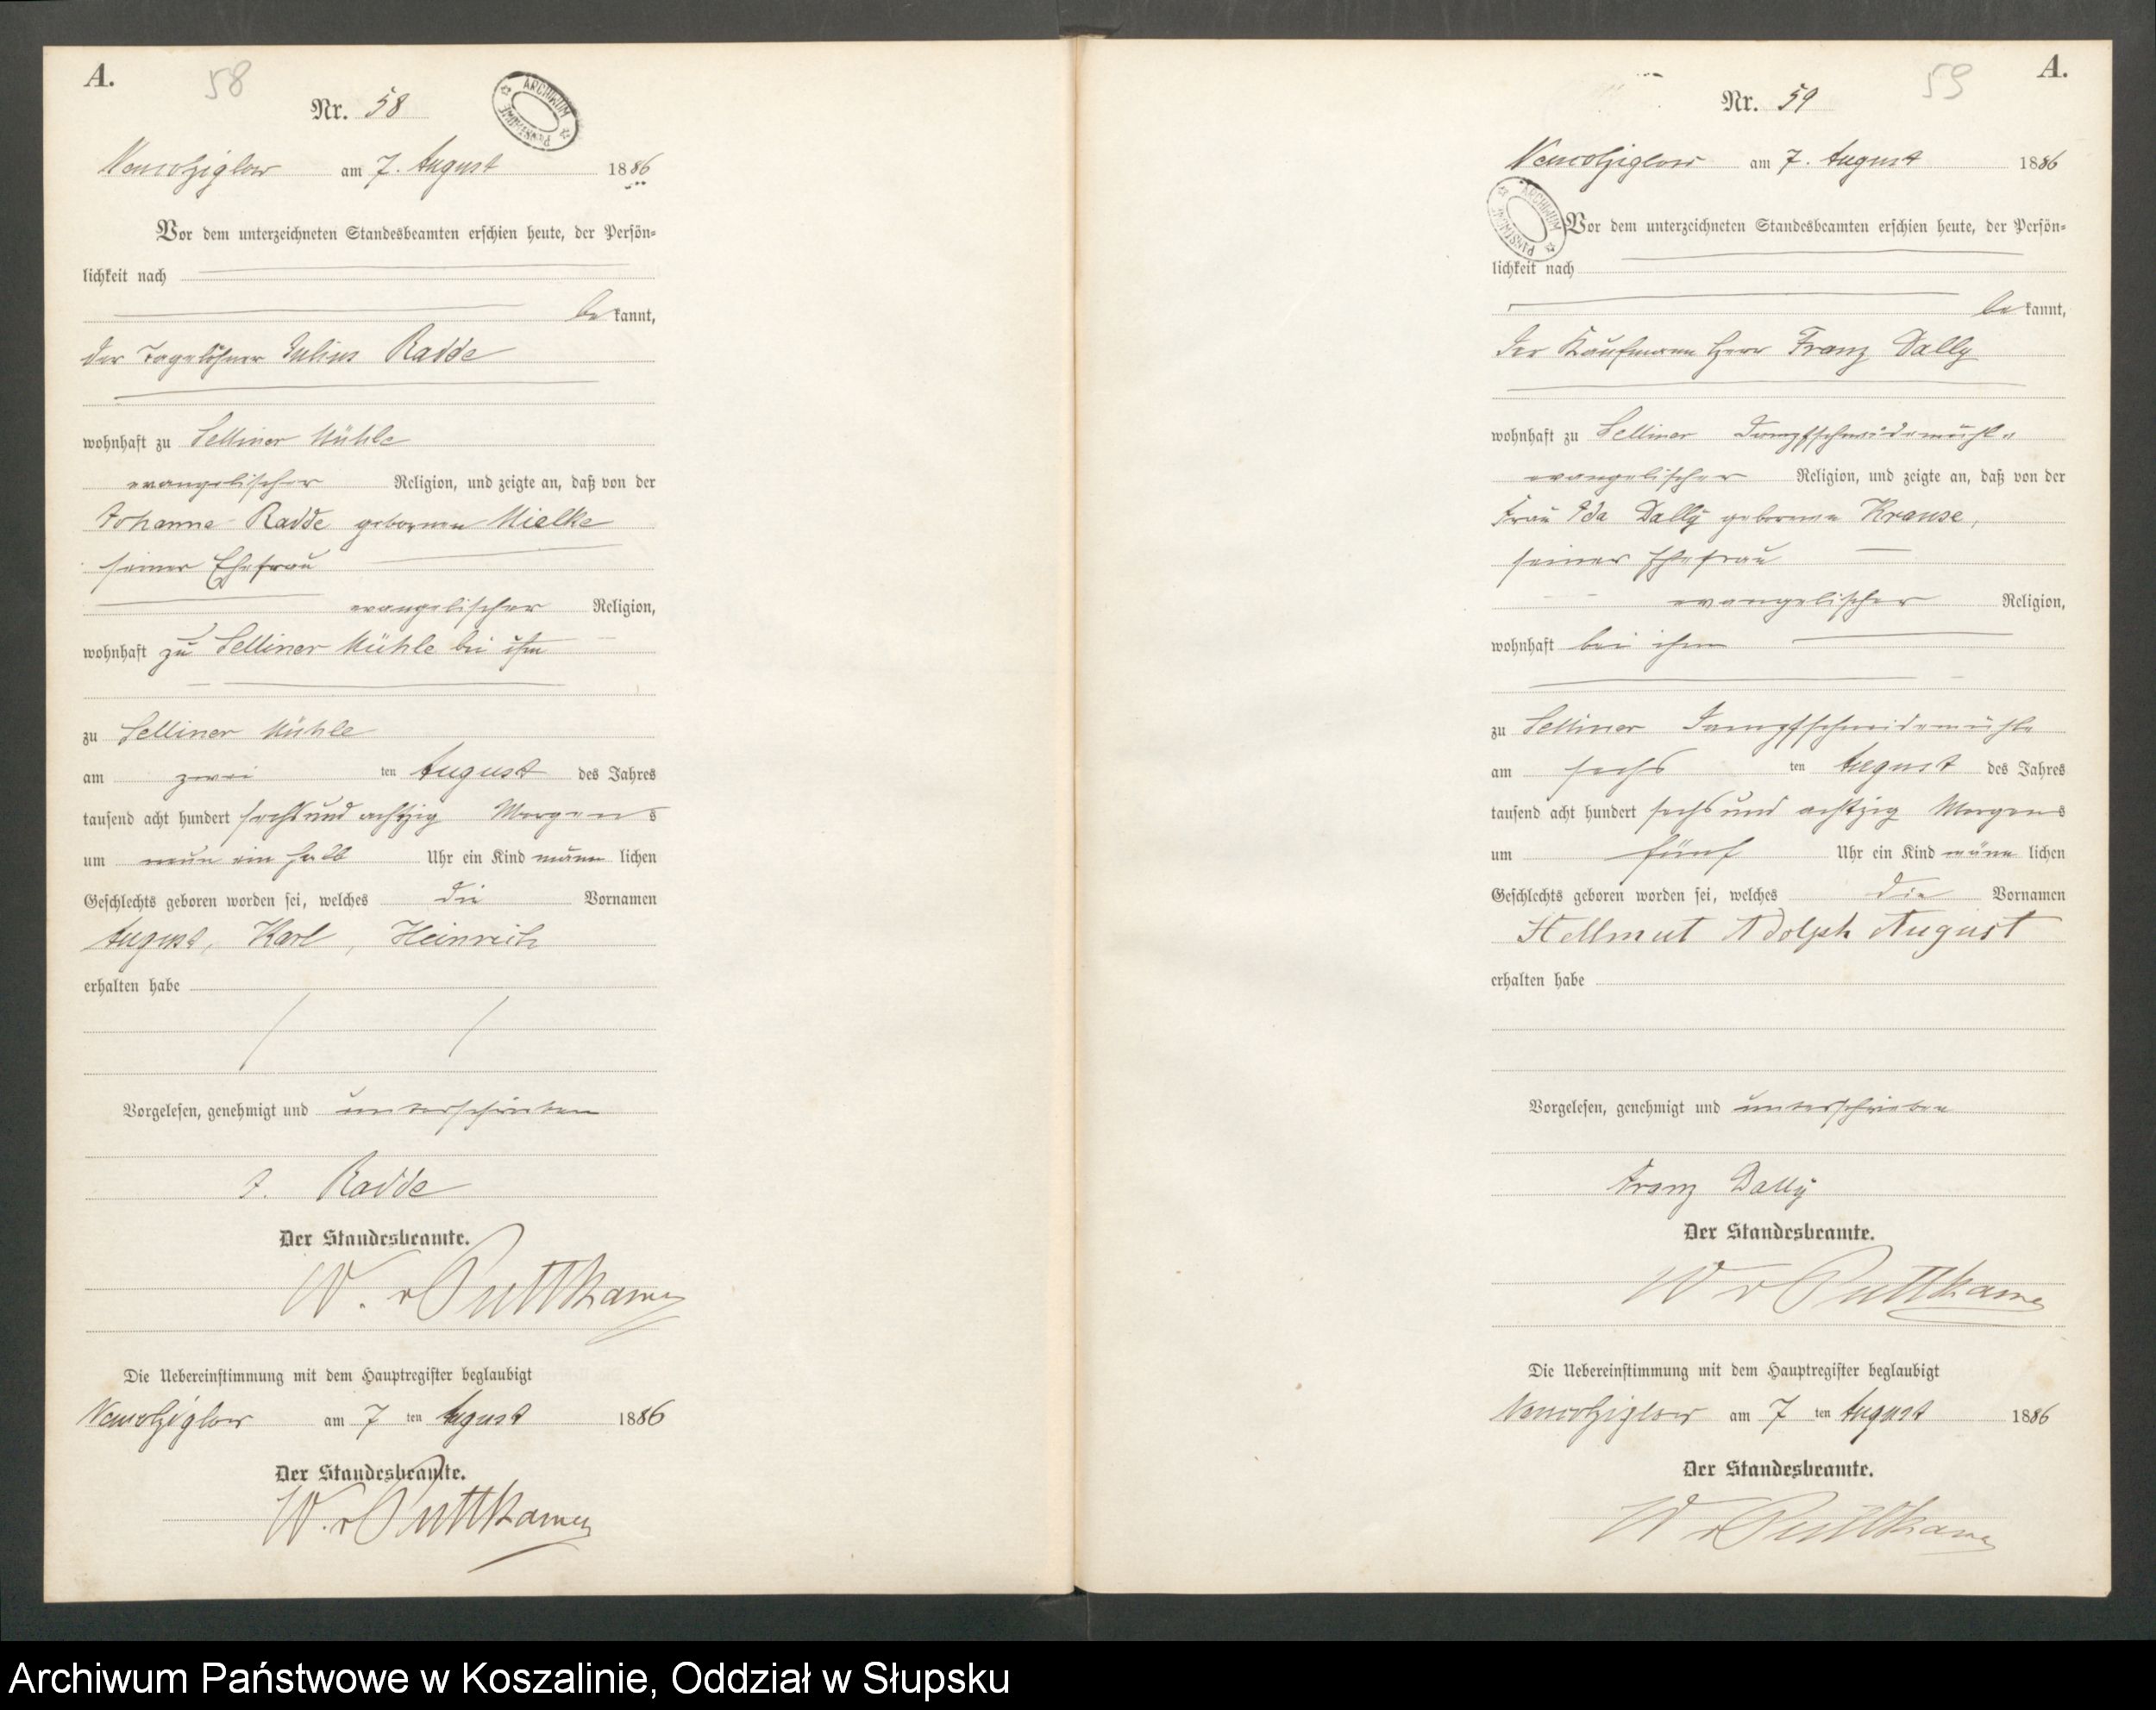 A.
58
Nr. 58
ARCHIWUM PAŃSTWOWE
am 7. August 1886
Vor dem unterzeichneten Standesbeamten erschien heute, der Persön-
lichkeit nach
be kannt,
der Tagelöhner Julius Radde
wohnhaft zu Selliner Mühle
evangelischer Religion, und zeigte an, daß von der
Johanna Radde geborenen Mielke
seiner Ehefrau
evangelischer Religion,
wohnhaft zu Selliner Mühle bei ihm
zu Selliner Mühle
am zwei ten August des Jahres
tausend acht hundert sechs und achtzig Morgens
um neun ein halb Uhr ein Kind männ lichen
Geschlechts geboren worden sei, welches die Vornamen
August, Karl, Heinrich
erhalten habe
Vorgelesen, genehmigt und unterschrieben
J. Radde
Der Standesbeamte.
W. v Puttkamer
Die Uebereinstimmung mit dem Hauptregister beglaubigt
am 7 ten August 1886
Der Standesbeamte.
W. v Puttkamer
A.
59
Nr. 59
am 7. August 1886
ARCHIWUM PAŃSTWOWE
Vor dem unterzeichneten Standesbeamten erschien heute, der Persön-
lichkeit nach
be kannt,
der Kaufmann Herr Franz Dally
wohnhaft zu Selliner Dampfschneidemühle
evangelischer Religion, und zeigte an, daß von der
Frau Ida Dally geborenen Krause,
seiner Ehefrau
evangelischer Religion,
wohnhaft bei ihm
zu Selliner Dampfschneidemühle
am sechs ten August des Jahres
tausend acht hundert sechs und achtzig Morgens
um fünf Uhr ein Kind männ lichen
Geschlechts geboren worden sei, welches die Vornamen
Hellmut Adolph August
erhalten habe
Vorgelesen, genehmigt und unterschrieben
Franz Dally
Der Standesbeamte.
W v Puttkamer
Die Uebereinstimmung mit dem Hauptregister beglaubigt
am 7 ten August 1886
Der Standesbeamte.
W v Puttkamer
Archiwum Państwowe w Koszalinie, Oddział w Słupsku